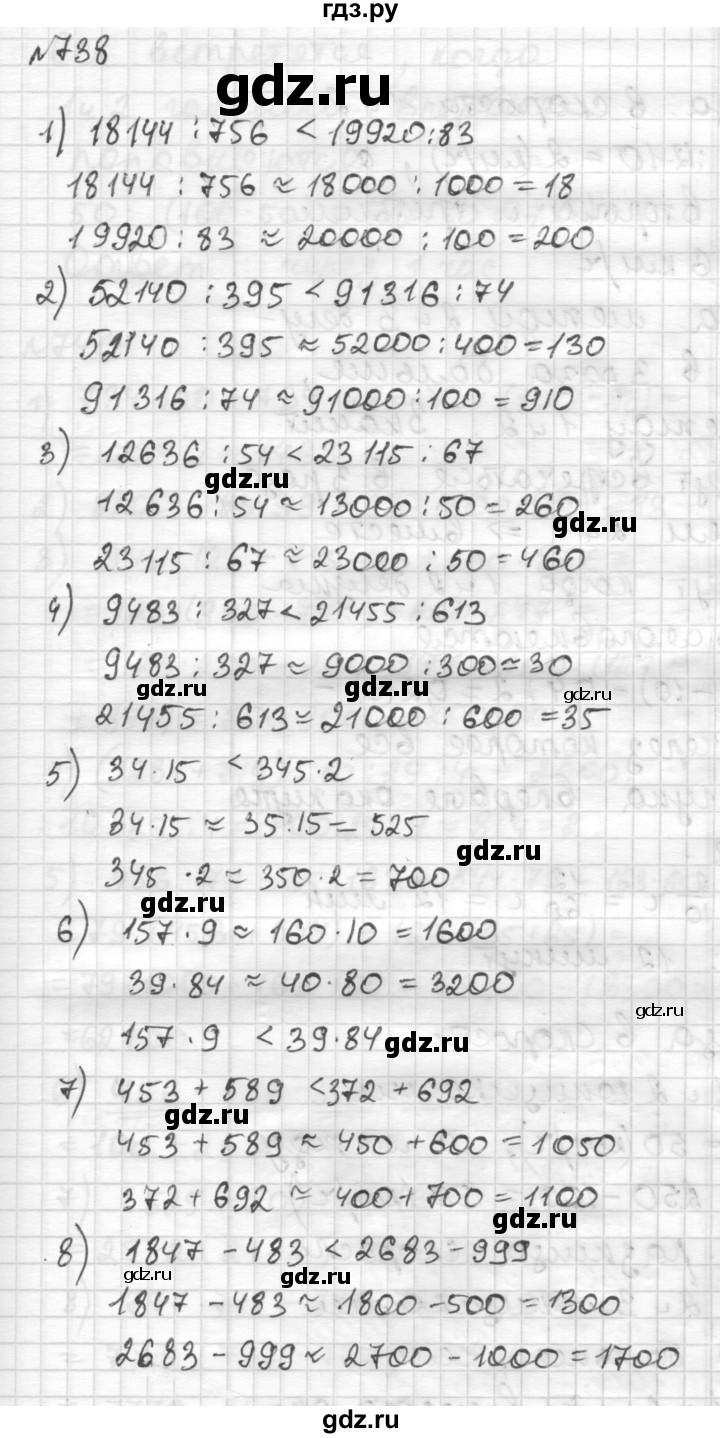 гдз.ру
№738
gdz.ru
1) 18144 : 756 < 19920:83
18144 : 756 ≈ 18000 : 1000 = 18
19920 : 83 ≈ 20000 : 100 = 200
2) 52140 : 395 < 91316 : 74
52140 : 395 ≈ 52000 : 400 = 130
91316 : 74 ≈ 91000 : 100 = 910
3) 12636 : 54 < 23115 : 67
gdz.ru
12636 : 54 ≈ 13000 : 50 = 260
gdz.ru
23115 : 67 ≈ 23000 : 50 = 460
4) 9483 : 327 < 21455 : 613
9483 : 327 ≈ 9000 : 300 = 30
gdz.ru gdz.ru gdz.ru
21455 : 613 ≈ 21000 : 600 = 35
5) 34·15 < 345·2
34·15 ≈ 35·15 = 525
gdz.ru
345 · 2 ≈ 350·2 = 700
gdz.ru
6) 157·9 ≈ 160·10 = 1600
39·84 ≈ 40·80 = 3200
gdz.ru
157·9 < 39·84
gdz.ru
7) 453 + 589 < 372 + 692
gdz.ru
453 + 589 ≈ 450 + 600 = 1050
372 + 692 ≈ 400 + 700 = 1100
gdz.ru
8) 1847 - 483 < 2683 - 999
gdz.ru gdz.ru
1847 - 483 ≈ 1800 - 500 = 1300
2683 - 999 ≈ 2700 - 1000 = 1700
gdz.ru
gdz.ru